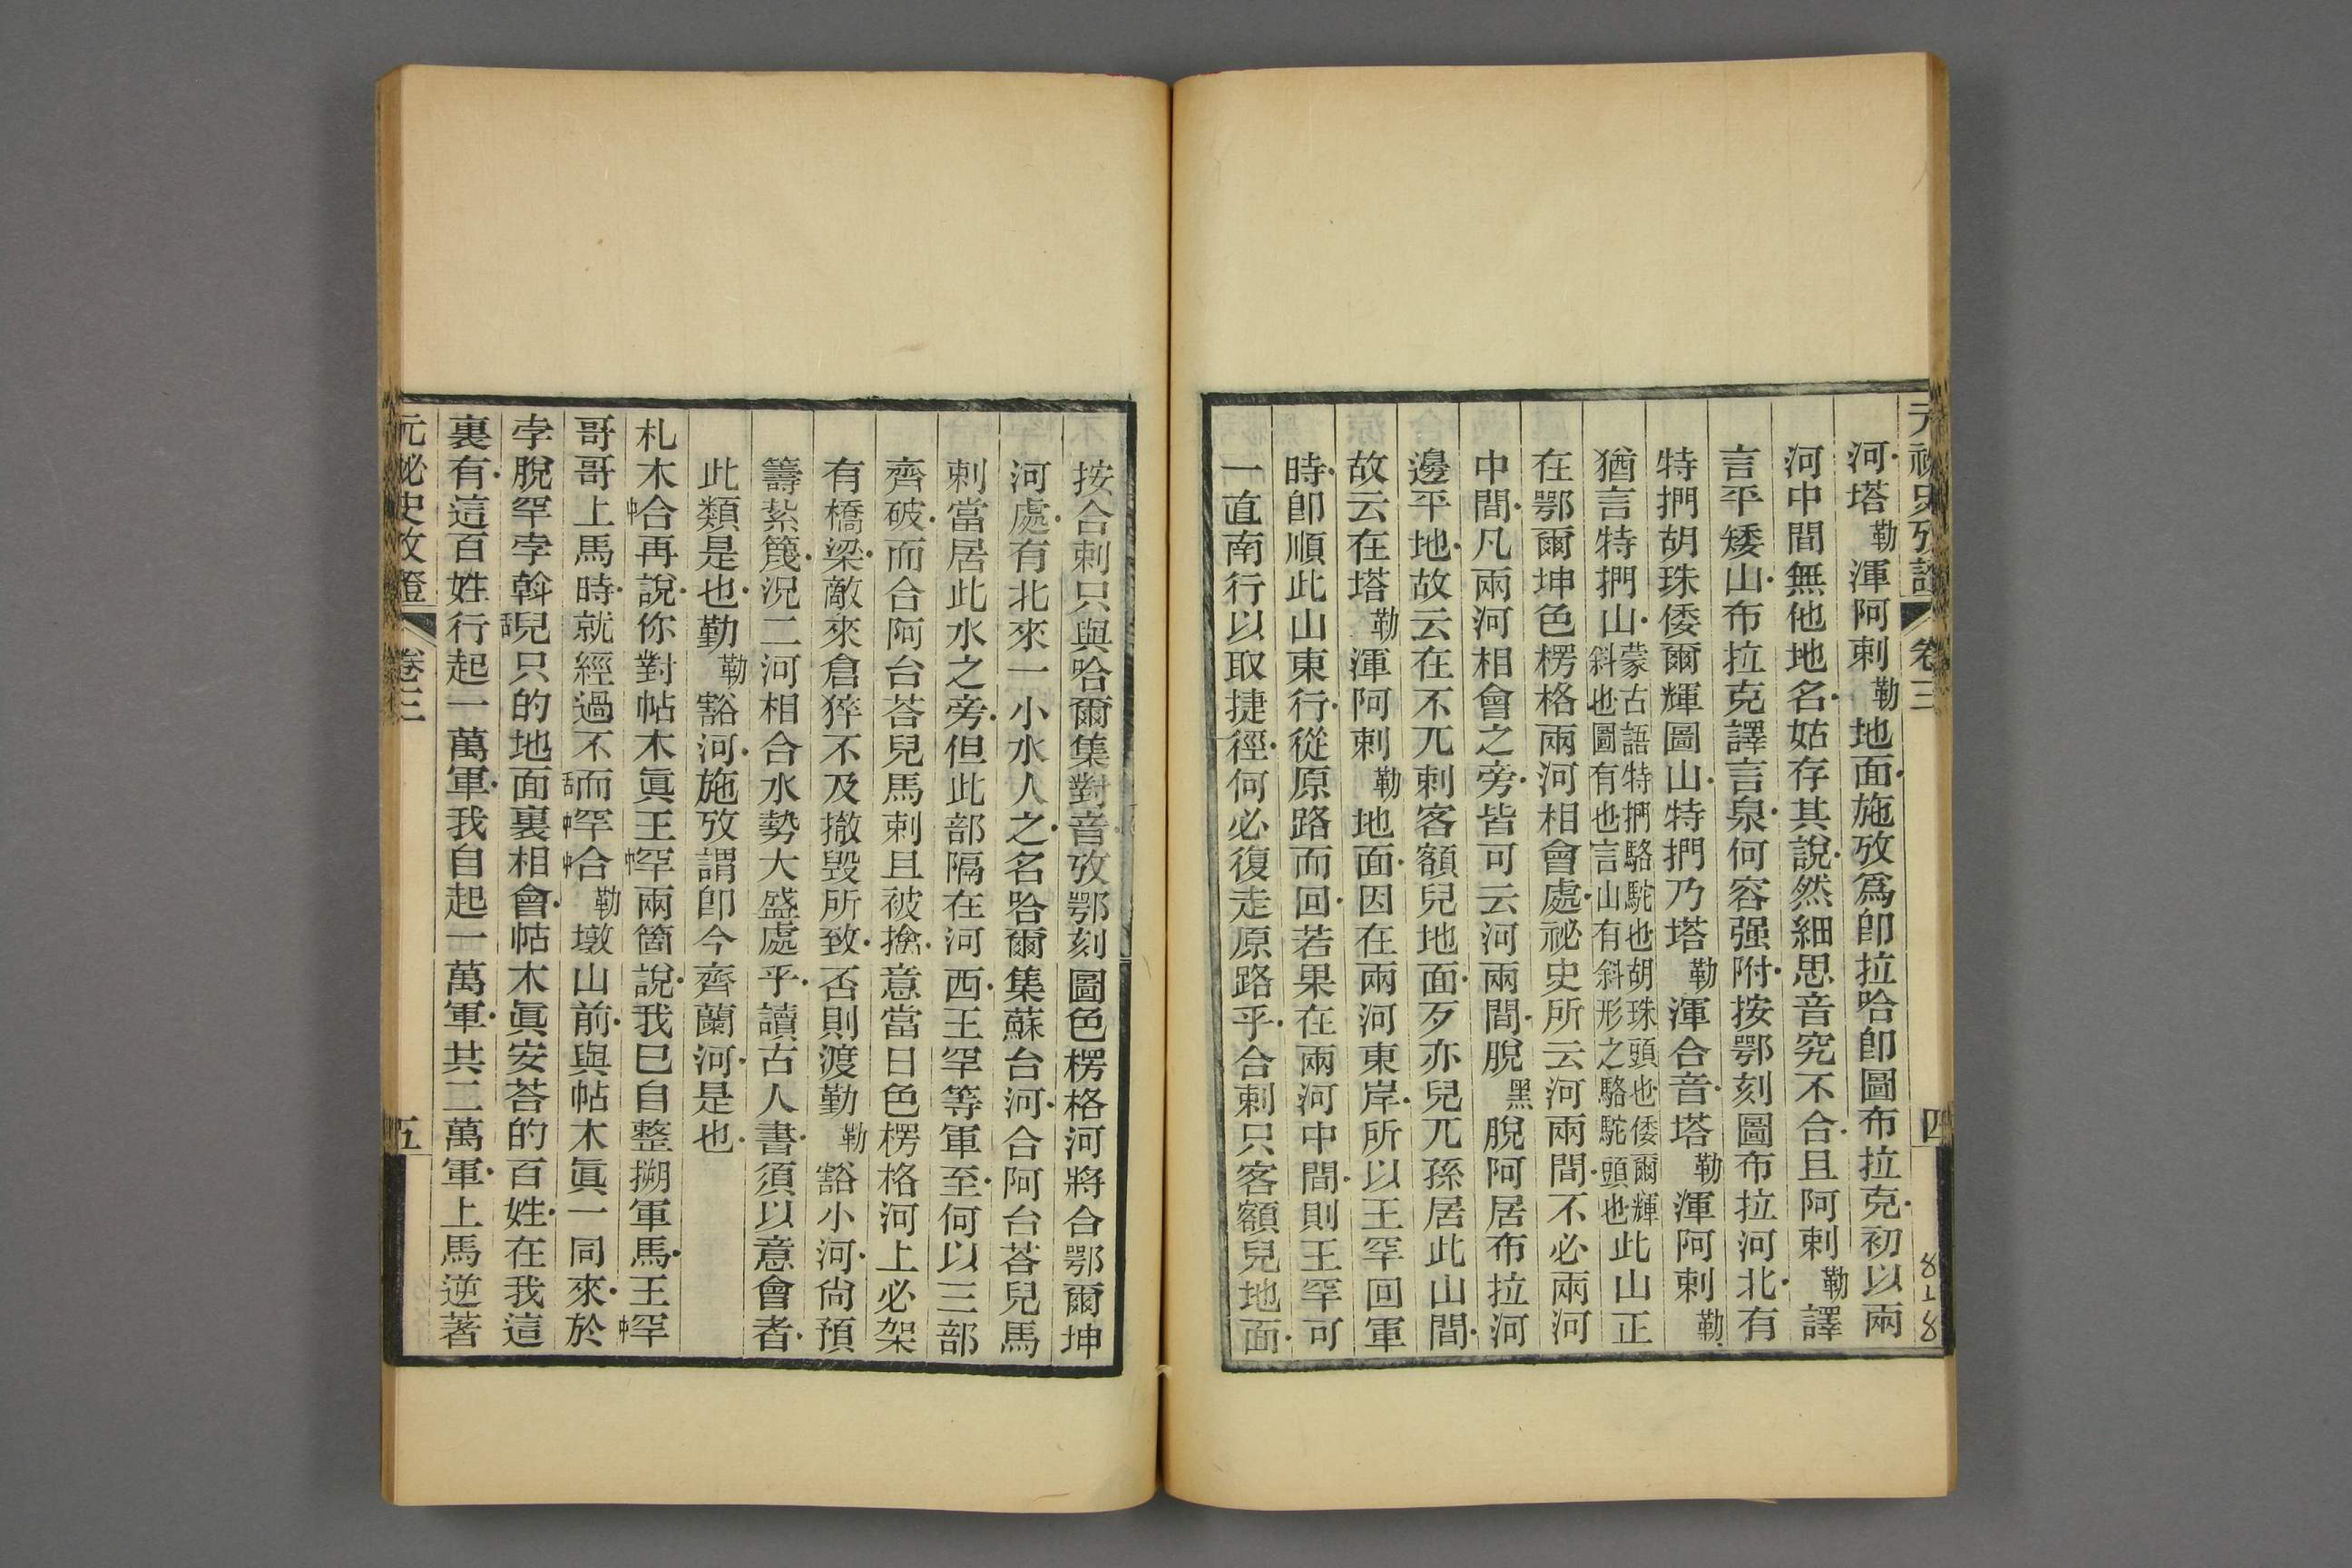 元祕史攷證 卷三 四
河塔勒渾阿剌勒地面施攷爲卽拉哈卽圖布拉克初以兩
河中間無他地名姑存其說然細思音究不合且阿剌勒譯
言平矮山布拉克譯言泉何容强附按鄂刻圖布拉河北有
特捫胡珠倭爾輝圖山特捫乃塔勒渾合音塔勒渾阿剌勒
猶言特捫山蒙古語特捫駱駝也胡珠頭也倭爾輝斜也圖有也言山有斜形之駱駝頭也此山正
在鄂爾坤色楞格兩河相會處祕史所云河兩間不必兩河
中間凡兩河相會之旁皆可云河兩間脫黑脫阿居布拉河
邊平地故云在不兀剌客額兒地面歹亦兒兀孫居此山間
故云在塔勒渾阿剌勒地面因在兩河東岸所以王罕回軍
時卽順此山東行從原路而回若果在兩河中間則王罕可
一直南行以取捷徑何必復走原路乎合剌只客額兒地面
按合剌只與哈爾集對音攷鄂刻圖色楞格河將合鄂爾坤
河處有北來一小水人之名哈爾集蘇台河合阿台荅兒馬
剌當居此水之旁但此部隔在河西王罕等軍至何以三部
齊破而合阿台荅兒馬剌且被擒意當日色楞格河上必架
有橋梁敵來倉猝不及撤毀所致否則渡勤勒豁小河尙預
籌紮筏況二河相合水勢大盛處乎讀古人書須以意會者
此類是也勤勒豁河施攷謂卽今齊蘭河是也
札木中合再說你對帖木眞王中罕兩箇說我已自整搠軍馬王中罕
哥哥上馬時就經過不舌而中罕中合勒墩山前與帖木眞一同來於
孛脫罕孛斡舌兒只的地面裏相會帖木眞安荅的百姓在我這
裏有這百姓行起一萬軍我自起一萬軍共二萬軍上馬逆著
元祕史攷證 卷三 五